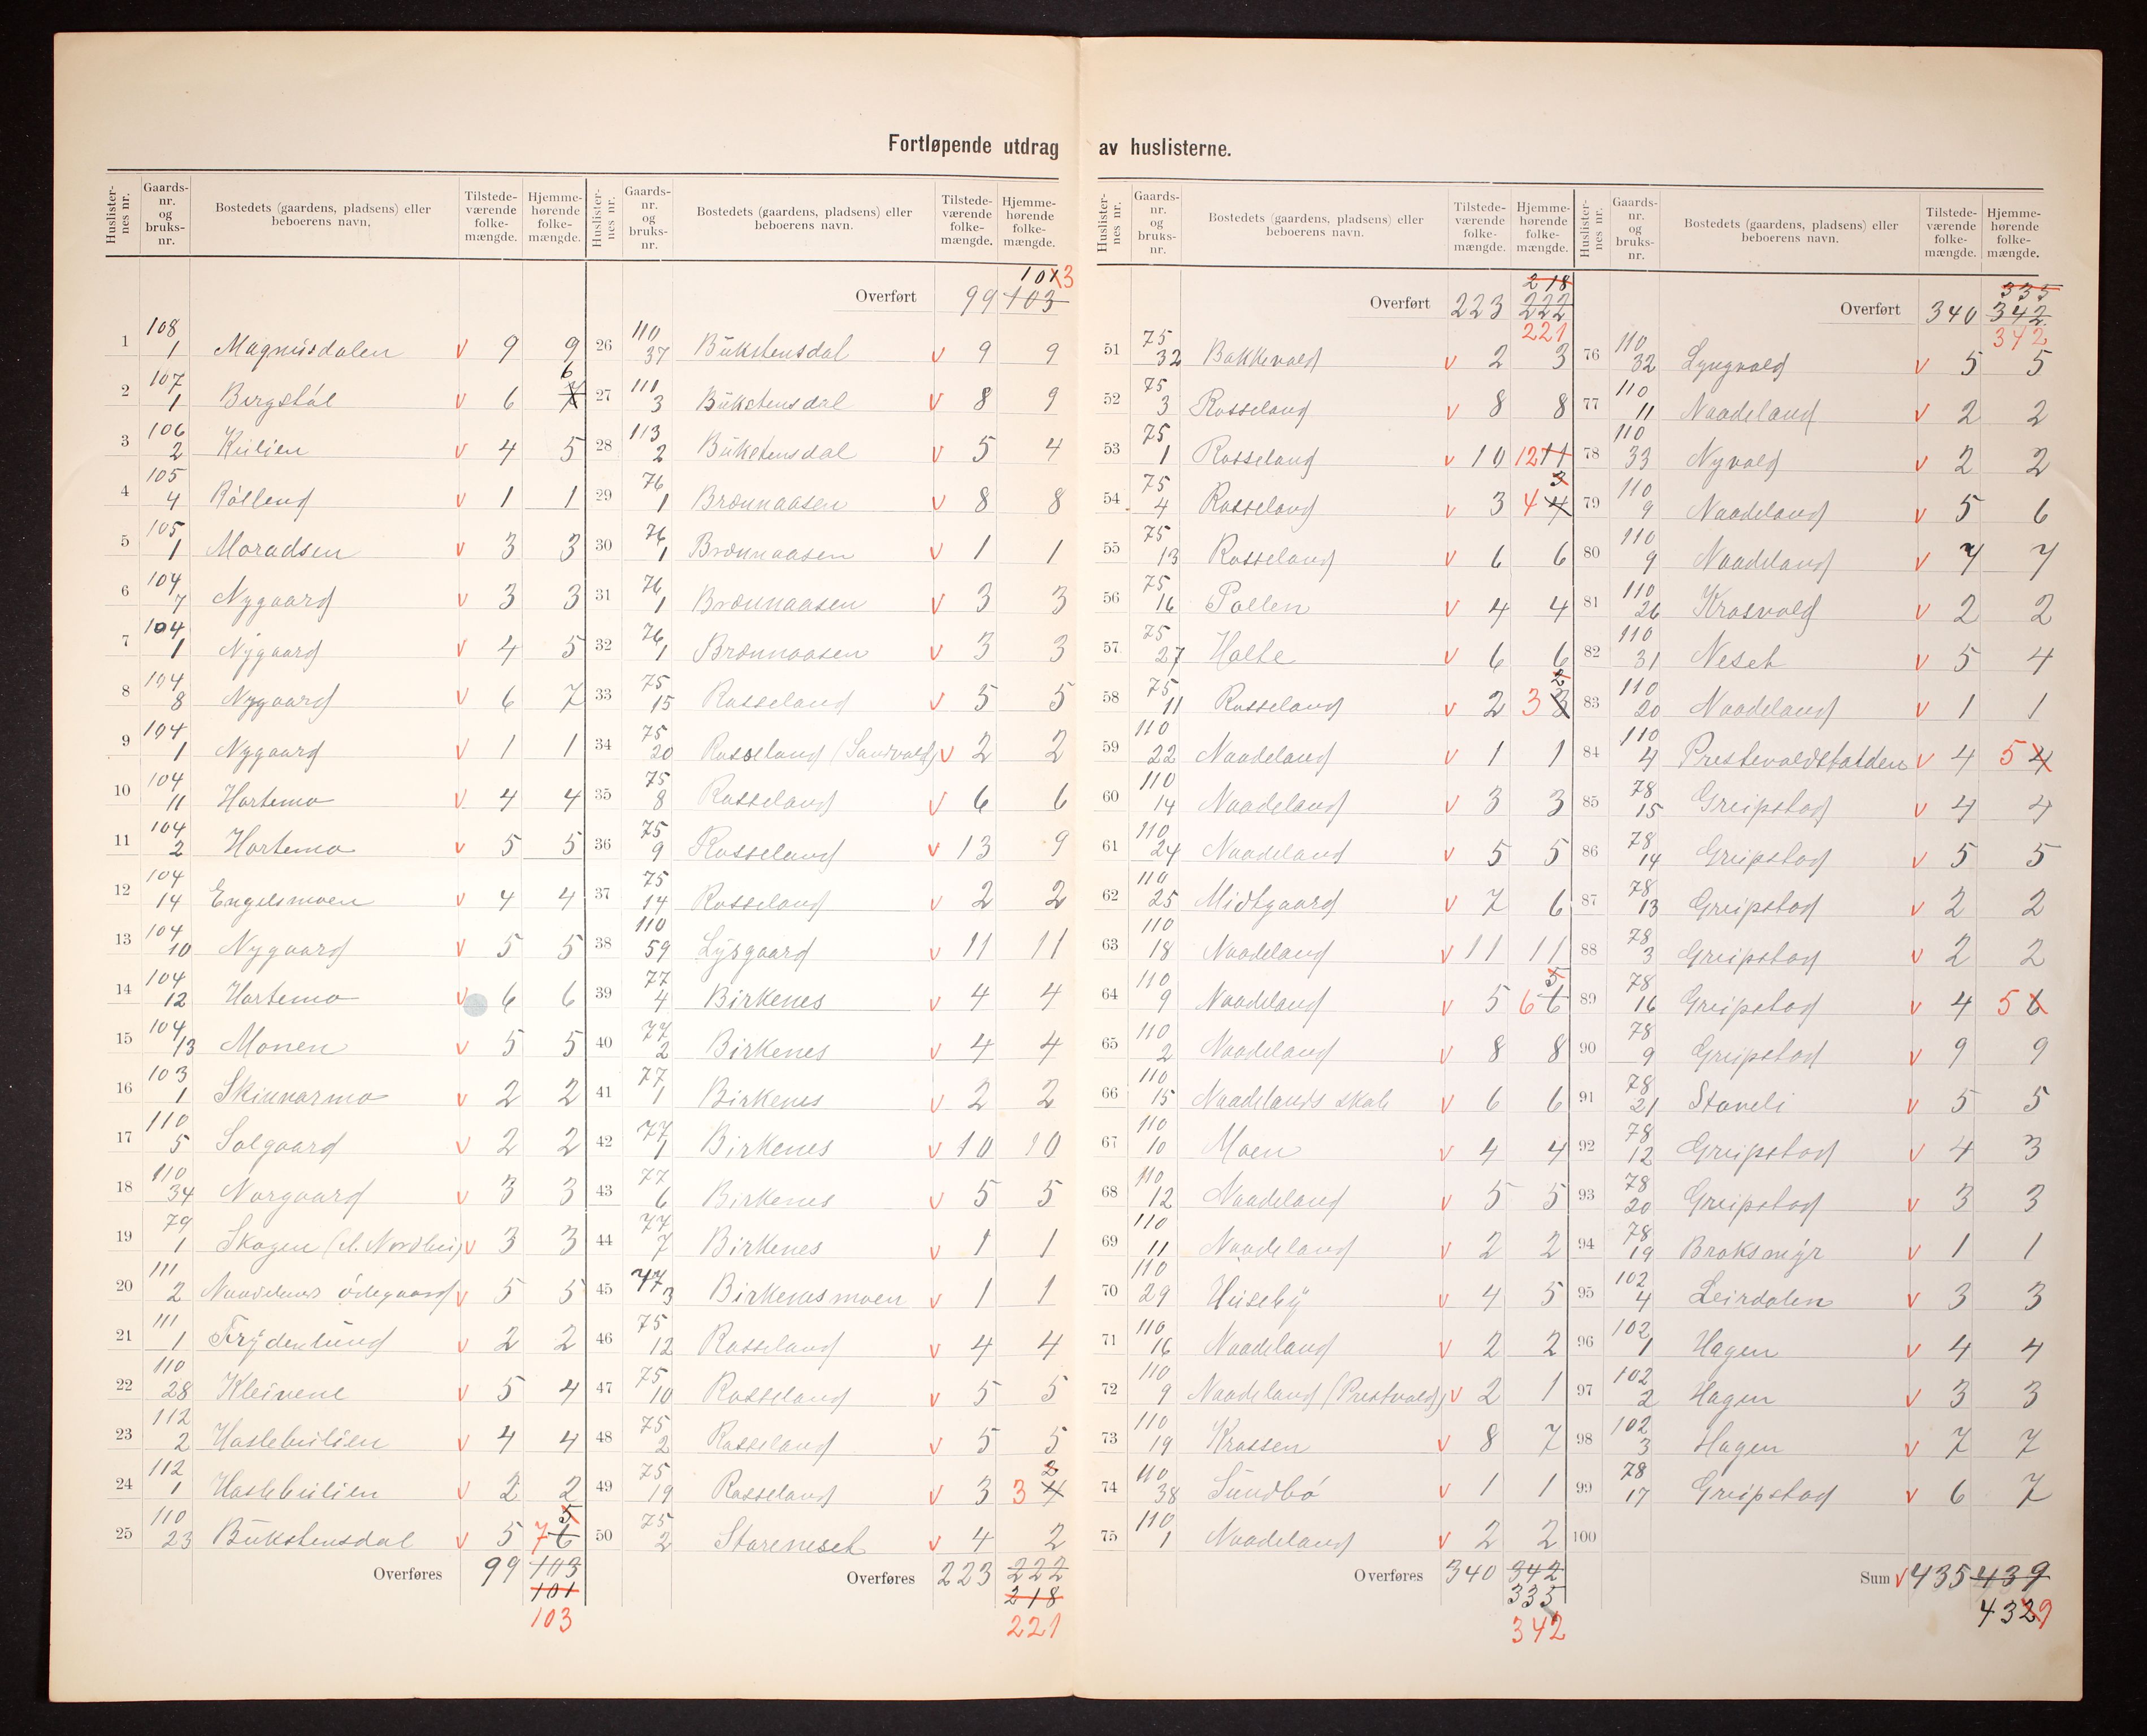 Fortløpende utdrag av huslisterne.
Huslister-nes nr. Gaards-nr. og bruks-nr. Bostedets (gaardens, pladsens) eller beboerens navn. Tilstede-værende folke-mængde. Hjemme-hørende folke-mængde.
1 108 1 Magnusdalen v 9 9
2 107 1 Bergstøl v 6 7 6
3 106 2 Keilien v 4 5
4 105 4 v 1 1
5 105 1 Moradsen v 3 3
6 104 7 Nygaard v 3 3
7 104 1 Nygaard v 4 5
8 104 8 Nygaard v 6 7
9 104 1 Nygaard v 1 1
10 104 11 Hortemo v 4 4
11 104 2 Hortemo v 5 5
12 104 14 Engelsmoen v 4 4
13 104 10 Nygaard v 5 5
14 104 12 Hortemo v 6 6
15 104 13 Monen v 5 5
16 103 1 Skinnarmo v 2 2
17 110 5 Solgaard v 2 2
18 110 34 Norgaard v 3 3
19 79 1 Skogen v 3 3
20 111 2 Naadelands ødegaard v 5 5
21 111 1 Frydenlund v 2 2
22 110 28 Kleivene v 5 4
23 112 2 Haslebeilien v 4 4
24 112 1 Haslebeilien v 2 2
25 110 23 Bukstensdal v 5 7 6 5
Overføres 99 103
101
103
Huslister-nes nr. Gaards-nr. og bruks-nr. Bostedets (gaardens, pladsens) eller beboerens navn. Tilstede-værende folke-mængde. Hjemme-hørende folke-mængde.
101 3
Overført 99 103
26 110 37 Bukstensdal v 9 9
27 111 3 Bukstensdal v 8 9
28 113 2 Bukstensdal v 5 4
29 76 1 Brønnaasen v 8 8
30 76 1 Brønnaasen v 1 1
31 76 1 Brønnaasen v 3 3
32 76 1 Brønnaasen v 3 3
33 75 15 Rosseland v 5 5
34 75 20 Rosseland (Sandvold) v 2 2
35 75 8 Rosseland v 6 6
36 75 9 Rosseland v 13 9
37 75 14 Rosseland v 2 2
38 110 59 Lysgaard v 11 11
39 77 4 Birkenes v 4 4
40 77 2 Birkenes v 4 4
41 77 1 Birkenes v 2 2
42 77 1 Birkenes v 10 10
43 77 6 Birkenes v 5 5
44 77 7 Birkenes v 1 1
45 77 3 Birkenesmoen v 1 1
46 75 12 Rosseland v 4 4
47 75 10 Rosseland v 5 5
48 75 2 Rosseland v 5 5
49 75 19 Rosseland v 3 3 4 2
50 75 2 Storeneset v 4 2
Overføres 223 222
218
221
Huslister-nes nr. Gaards-nr. og bruks-nr. Bostedets (gaardens, pladsens) eller beboerens navn. Tilstede-værende folke-mængde. Hjemme-hørende folke-mængde.
218
Overført 223 222
221
51 75 32 Bakkevold v 2 3
52 75 3 Rosseland v 8 8
53 75 1 Rosseland v 10 12 11
54 75 4 Rosseland v 3 4 4 3
55 75 13 Rosseland v 6 6
56 75 16 Pollen v 4 4
57 75 27 Holte v 6 6
58 75 11 Rosseland v 2 3 3 2
59 110 22 Naadeland v 1 1
60 110 14 Naadeland v 3 3
61 110 24 Naadeland v 5 5
62 110 25 Midtgaard v 7 6
63 110 18 Naadeland v 11 11
64 110 9 Naadeland v 5 6 6 5
65 110 2 Naadeland v 8 8
66 110 15 Naadelands skole v 6 6
67 110 10 Moen v 4 4
68 110 12 Naadeland v 5 5
69 110 11 Naadeland v 2 2
70 110 29 Huseby v 4 5
71 110 16 Naadeland v 2 2
72 110 9 Naadeland (Prestvold) v 2 1
73 110 19 Krossen v 8 7
74 110 38 Sundbø v 1 1
75 110 1 Naadeland v 2 2
Overføres 340 342
335
342
Huslister-nes nr. Gaards-nr. og bruks-nr. Bostedets (gaardens, pladsens) eller beboerens navn. Tilstede-værende folke-mængde. Hjemme-hørende folke-mængde.
335
Overført 340 342
342
76 110 32 Lyngvold v 5 5
77 110 11 Naadeland v 2 2
78 110 33 Nyvold v 2 2
79 110 9 Naadeland v 5 6
80 110 9 Naadeland v 7 7
81 110 26 Krosvold v 2 2
82 110 31 Neset v 5 4
83 110 20 Naadeland v 1 1
84 110 4 v 4 5 4
85 78 15 Greipstad v 4 4
86 78 14 Greipstad v 5 5
87 78 13 Greipstad v 2 2
88 78 3 Greipstad v 2 2
89 78 16 Greipstad v 4 5 6
90 78 9 Greipstad v 9 9
91 78 21 Stoveli v 5 5
92 78 12 Greipstad v 4 3
93 78 20 Greipstad v 3 3
94 78 19 Broksmyr v 1 1
95 102 4 Leirdalen v 3 3
96 102 1 Hagen v 4 4
97 102 2 Hagen v 3 3
98 102 3 Hagen v 7 7
99 78 17 Greipstad v 6 7
100
Sum v 435 439
432 9